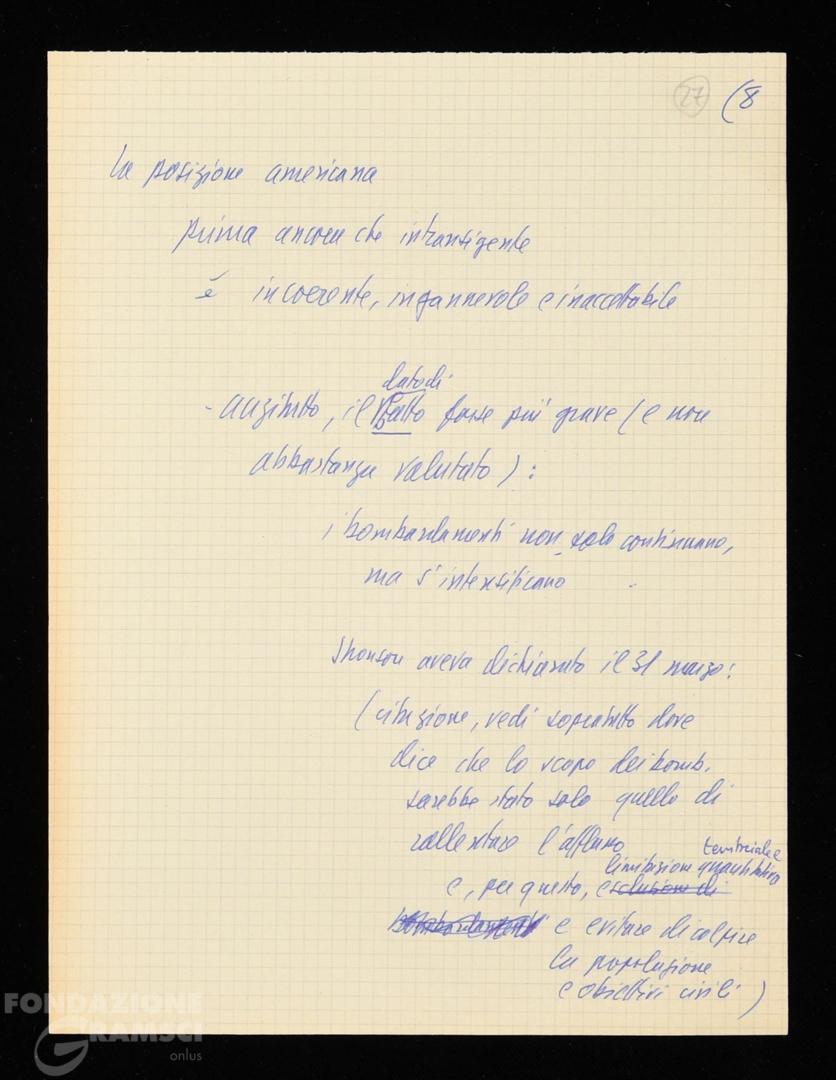 27 (8
La posizione americana
prima ancora che intransigente
è incoerente, ingannevole e inaccettabile
dato di
- anzitutto, il fatto forse più grave (e non
abbastanza valutato):
i bombardamenti non solo continuano,
ma s'intensificano
Jhonson aveva dichiarato il 31 marzo:
(citazione, vedi sopratutto dove
dice che lo scopo dei bomb.
sarebbe stato solo quello di
rallentare l'afflusso
territoriale e
limitazione quantitativa
e, per questo, esclusione di
bombardamenti e evitare di colpire
la popolazione
e obiettivi civili)
FONDAZIONE
GRAMSCI
onlus